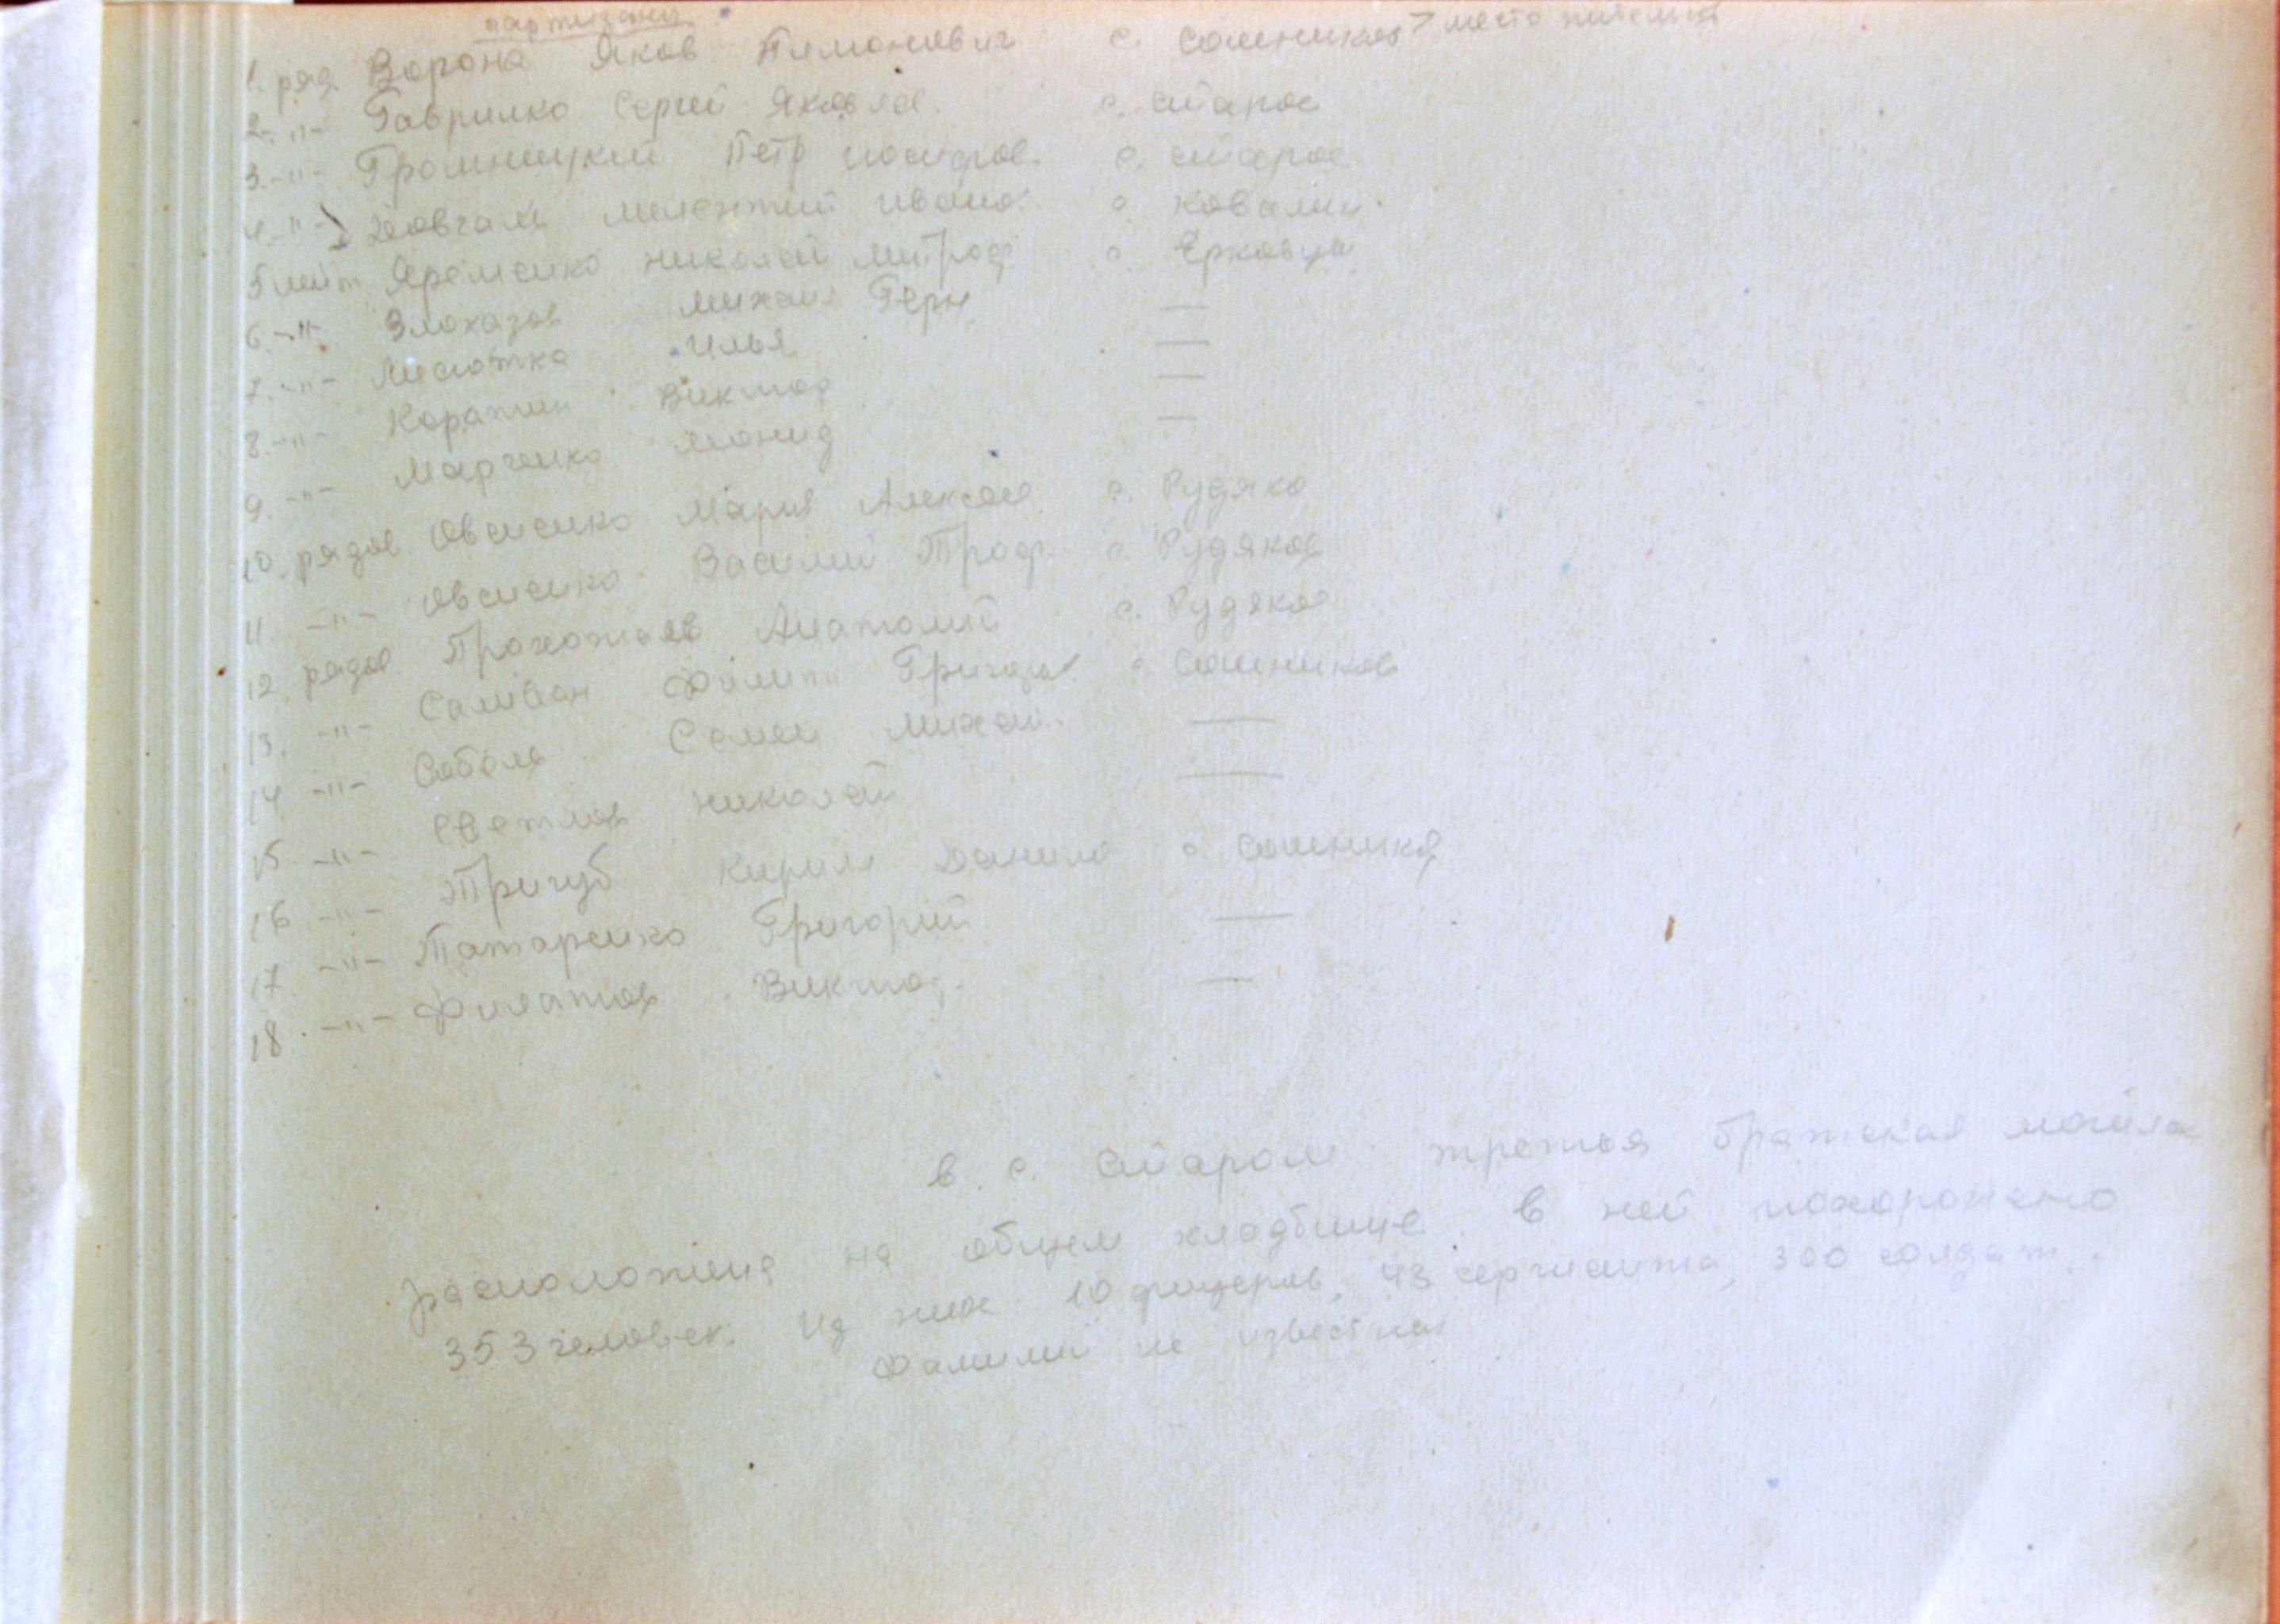 партизаны
1. ряд. Ворона Яков Тимонович с. Сошников > место жительст
2. -"- Гаврилко Сергей Яковлев. с. Старое
3. -"- Громницкий Петр Иосифов. с. Старое
4. -"- Довгаль Мелентий Ивано. с. Ковалин.
5 лейт Яременко Николай Митроф. с. Ерковцы
6. -"- Злоказов Михаил Герм. —
7. -"- Илья —
8. -"- Каратин Виктор —
9. -"- Марченко Леонид —
10. рядов. Овсиенко Мария Алексее с. Рудяко
11. -"- Овсиенко Василий Троф. с. Рудяков
12. рядов. Анатолий с. Рудяков
13. -"- Саливон Филипп Григор. с. Сошников
14 -"- Соболь Семен Михай. —
15 -"- Светлов Николай —
16 -"- Тригуб Кирилл Данило с Сошников
17. -"- Татаренко Григорий —
18. -"- Филатов Виктор. —
В с. Старом третья братская могила
расположена на общем кладбище. В ней похоронено
353 человек. Из них 10 офицеров, 43 сержанта, 300 солдат.
Фамилии не известны